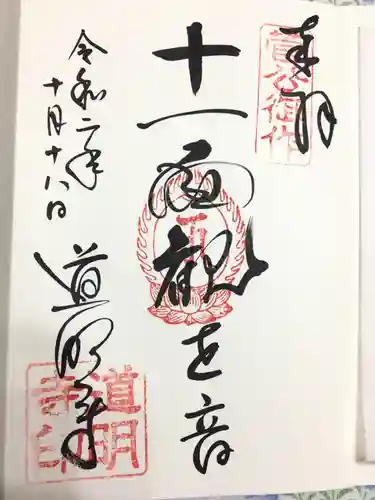 奉拝
十一面観世音
令和二年
十月十八日
道明寺
道明
寺印